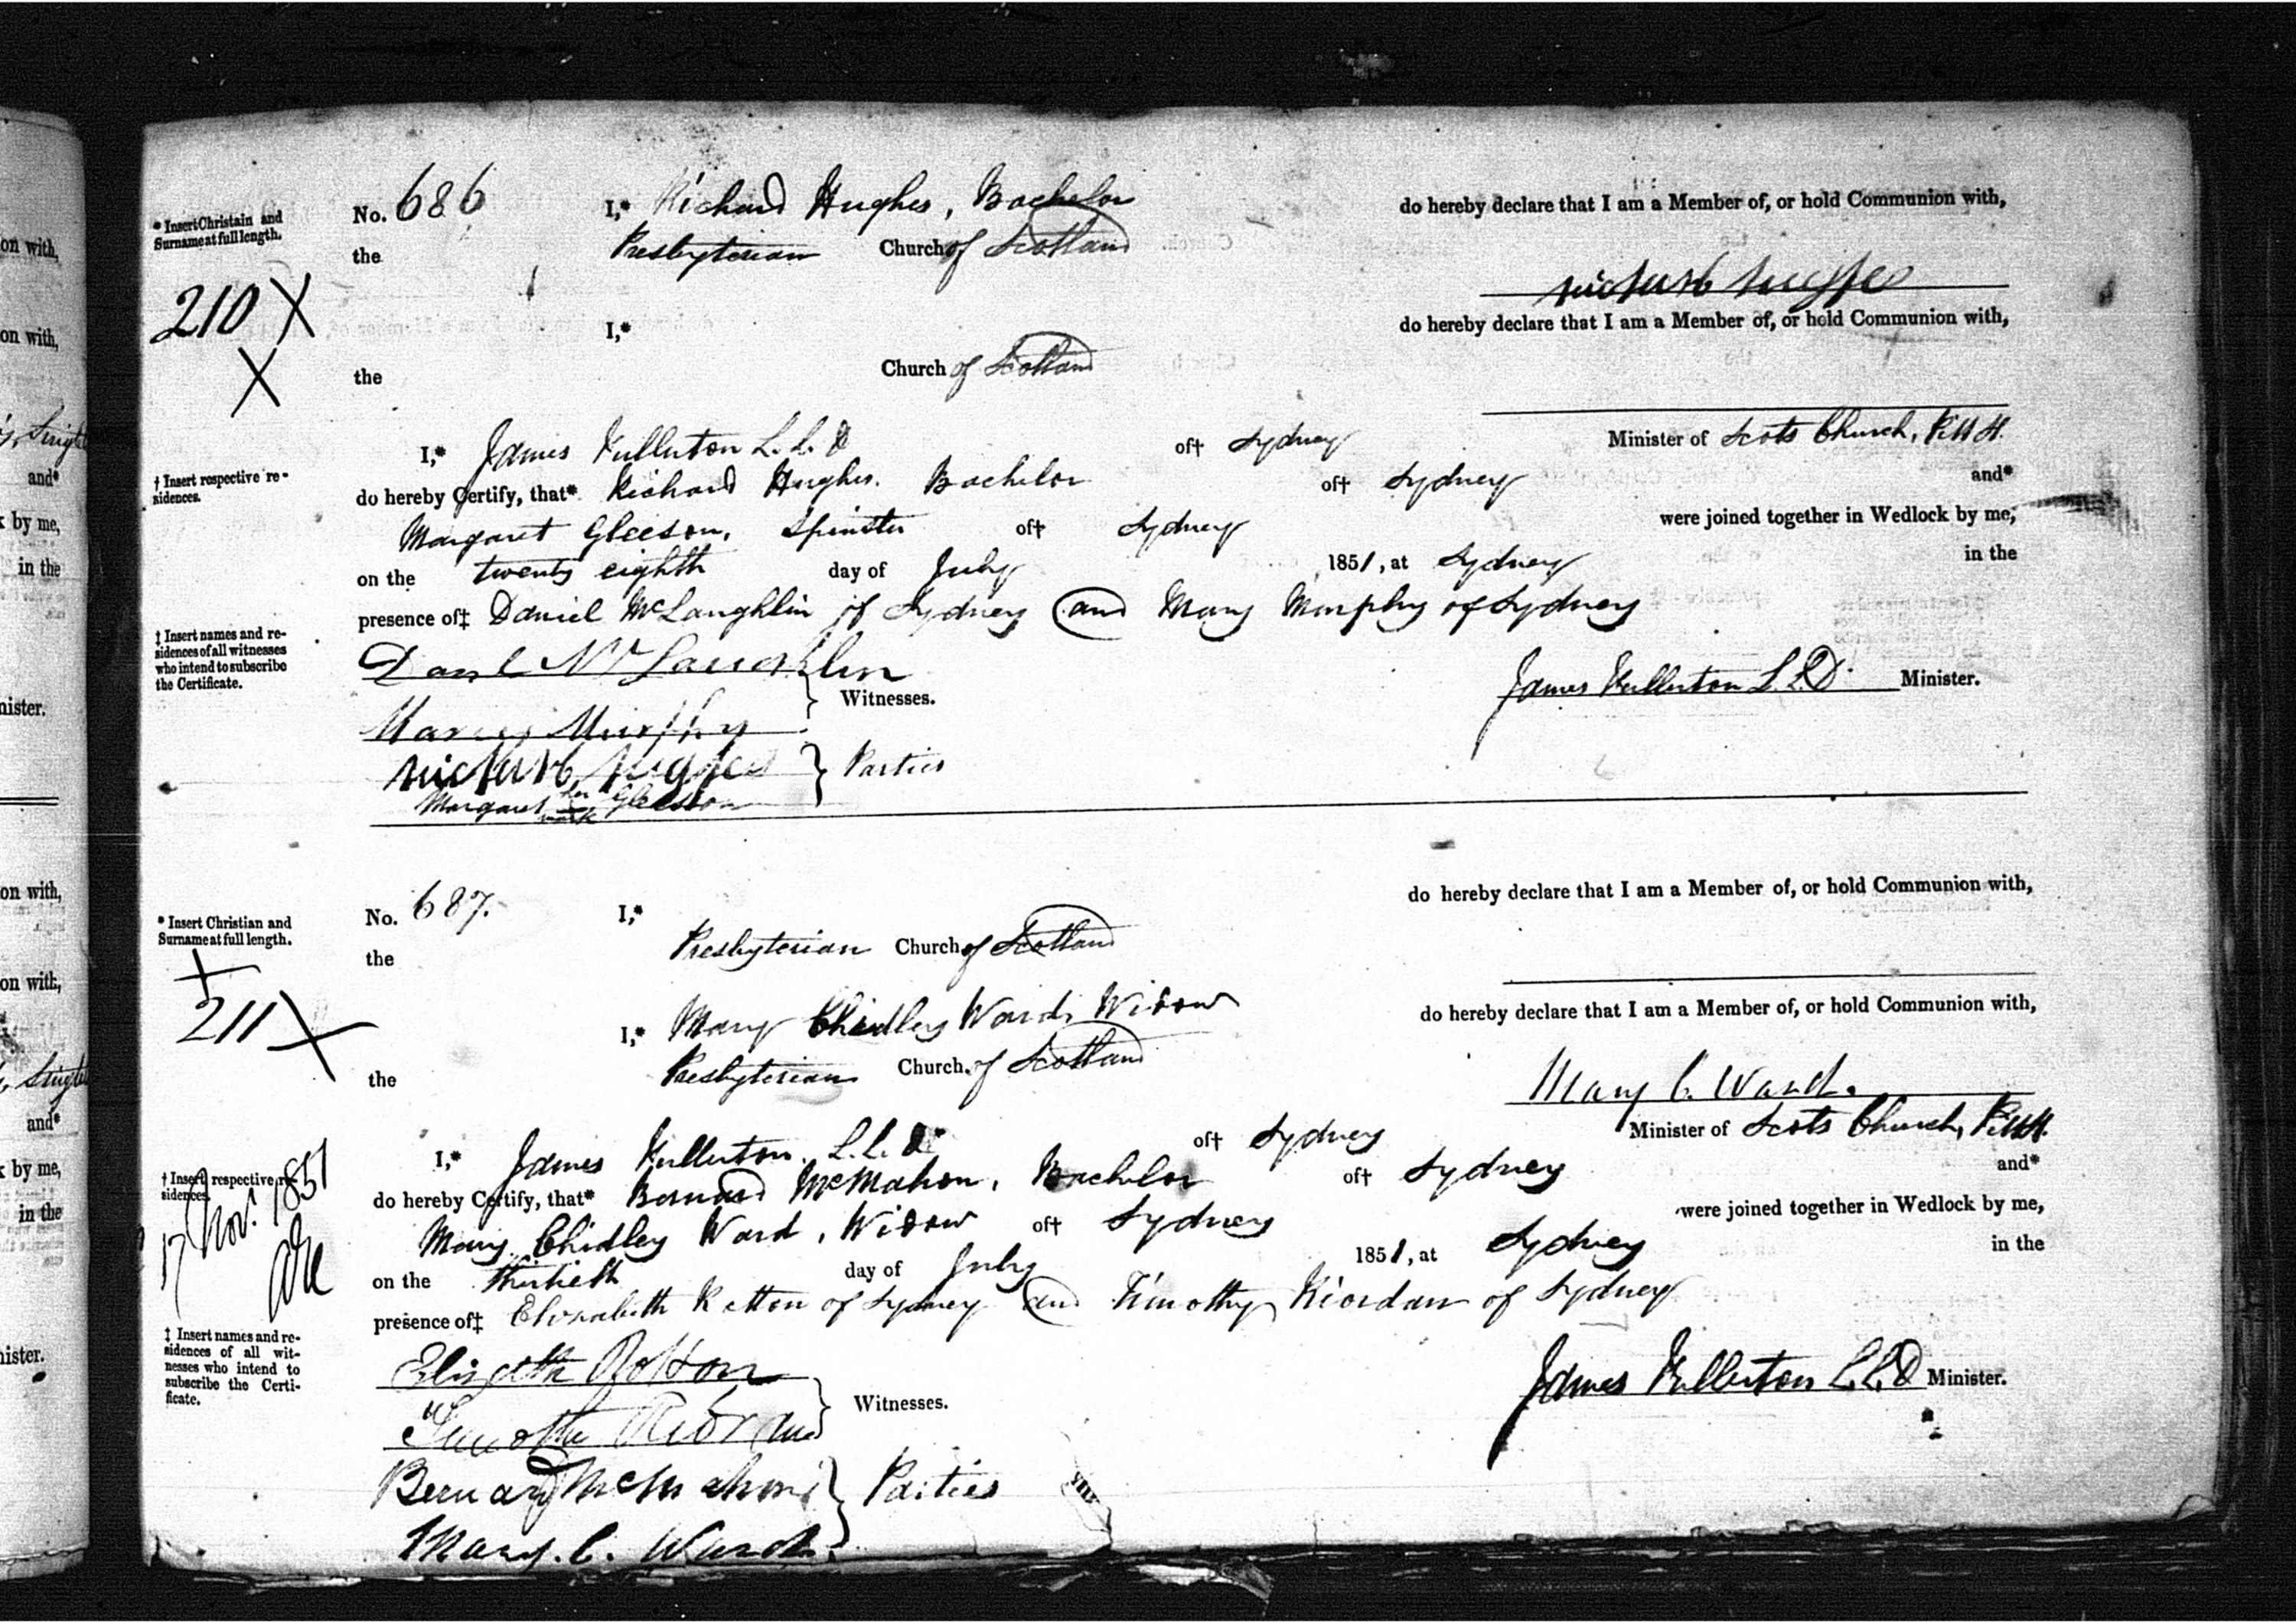 No. 686 I,* Richard Hughes, Bachelor do hereby declare that I am a Member of, or hold Communion with,
* Insert Christain and
Surname at full length.
the Presbyterian Church of Scotland
210 X
X
I,* do hereby declare that I am a Member of, or hold Communion with,
the Church of Scotland
I,* James Fullerton L.L.D of† Sydney Minister of Scots Church, Pitt St.
† Insert respective re-
sidences.
do hereby Certify, that* Richard Hughes. Bachelor of† Sydney and*
Margaret Gleeson, Spinster of† Sydney were joined together in Wedlock by me,
on the twenty eighth day of July 1851, at Sydney in the
presence of‡ Daniel McLaughlin of Sydney and Mary Murphy of Sydney
‡ Insert names and re-
sidences of all witnesses
who intend to subscribe
the Certificate.
Danl McLaughlin
James Fullerton L.L.D. Minister.
Witnesses.
Mary Murphy
Hughes
Parties
Margaret her mark Gleeson
No. 687. I,* do hereby declare that I am a Member of, or hold Communion with,
* Insert Christian and
Surname at full length.
the Presbyterian Church of Scotland
X
211 X
I,* Mary Chidley Ward, Widow do hereby declare that I am a Member of, or hold Communion with,
the Presbyterian Church of Scotland
Mary C. Ward.
I,* James Fullerton. L.L.D of† Sydney Minister of Scots Church, Pitt St.
† Insert respective re-
sidences.
17 Nov. 1851
do hereby Certify, that* Bernard McMahon, Bachelor of† Sydney and*
Mary Chidley Ward, Widow of† Sydney were joined together in Wedlock by me,
on the thirtieth day of July 1851, at Sydney in the
presence of‡ Elizabeth of Sydney and Timothy Riordan of Sydney
‡ Insert names and re-
sidences of all wit-
nesses who intend to
subscribe the Certi-
ficate.
James Fullerton L.L.D Minister.
Witnesses.
Timothy Riordan
Bernard McMahon
Parties
Mary. C. Ward.